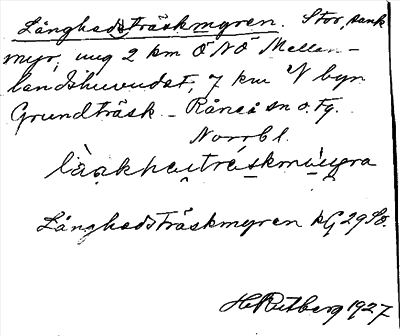 Långhedsträskmyren. Stor, sank
myr, ung 2 km ÖNÖ Mellan-
landshuvudet, 7 km N byn
Grundträsk – Råneå sn o. tg.
Norrbl.
Långhedsträskmyren kG 29 Sv.
H. Rutberg 1927